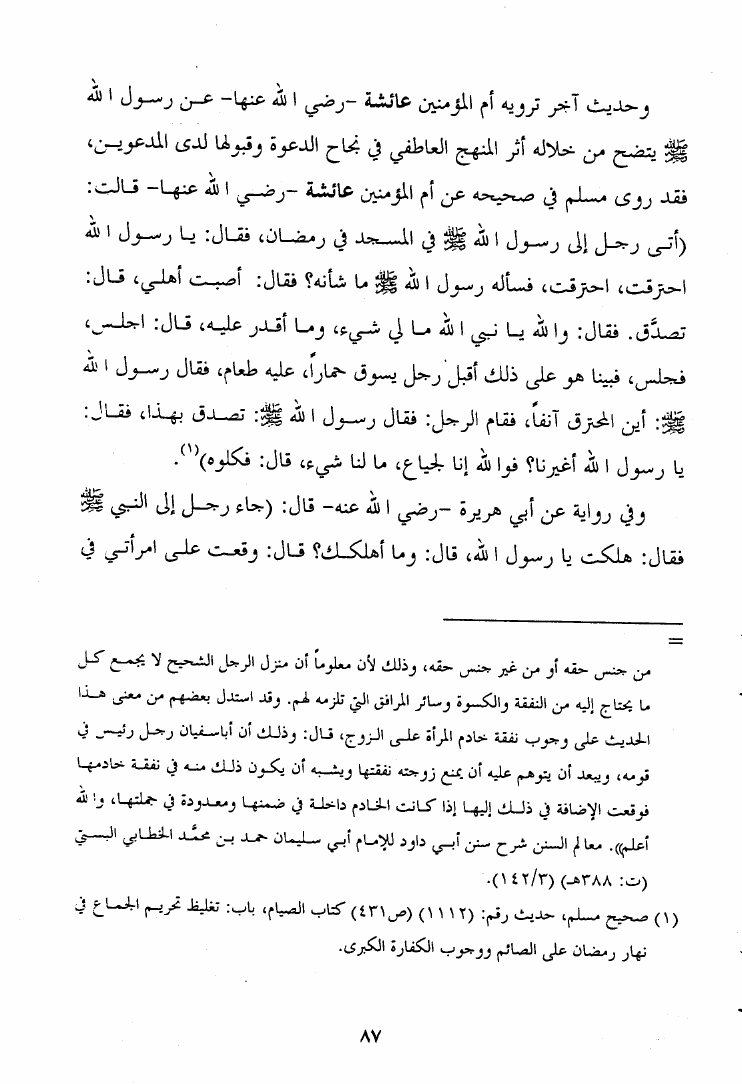 وحديث آخر ترويه أم المؤمنين عائشة -رضي الله عنها- عن رسول الله
ﷺ يتضح من خلاله أثر المنهج العاطفي في نجاح الدعوة وقبولها لدى المدعوين،
فقد روى مسلم في صحيحه عن أم المؤمنين عائشة -رضي الله عنها- قالت:
(أتى رجل إلى رسول الله ﷺ في المسجد في رمضان، فقال: يا رسول الله
احترقت، احترقت، فسأله رسول الله ﷺ ما شأنه؟ فقال: أصبت أهلي، قال:
تصدَّق. فقال: والله يا نبي الله ما لي شيء، وما أقدر عليه، قال: اجلس،
فجلس، فبينا هو على ذلك أقبل رجل يسوق حماراً، عليه طعام، فقال رسول الله
ﷺ: أين المحترق آنفاً، فقام الرجل: فقال رسول الله ﷺ: تصدق بهذا، فقال:
يا رسول الله أغيرنا؟ فوالله إنا لجياع، ما لنا شيء، قال: فكلوه)(١).
وفي رواية عن أبي هريرة -رضي الله عنه- قال: (جاء رجل إلى النبي ﷺ
فقال: هلكت يا رسول الله، قال: وما أهلكك؟ قال: وقعت على امرأتي في
=
من جنس حقه أو من غير جنس حقه، وذلك لأن معلوماً أن منزل الرجل الشحيح لا يجمع كل
ما يحتاج إليه من النفقة والكسوة وسائر المرافق التي تلزمه لهم. وقد استدل بعضهم من معنى هذا
الحديث على وجوب نفقة خادم المرأة على الزوج، قال: وذلك أن أباسفيان رجل رئيس في
قومه، ويبعد أن يتوهم عليه أن يمنع زوجته نفقتها ويشبه أن يكون ذلك منه في نفقة خادمها
فوقعت الإضافة في ذلك إليها إذا كانت الخادم داخلة في ضمنها ومعدودة في جملتها، والله
أعلم)). معالم السنن شرح سنن أبي داود للإمام أبي سليمان حمد بن محمَّد الخطابي البستي
(ت: ٣٨٨هـ) (١٤٢/٣).
(١) صحيح مسلم، حديث رقم: (١١١٢) (ص٤٣١) كتاب الصيام، باب: تغليظ تحريم الجماع في
نهار رمضان على الصائم ووجوب الكفارة الكبرى.
٨٧